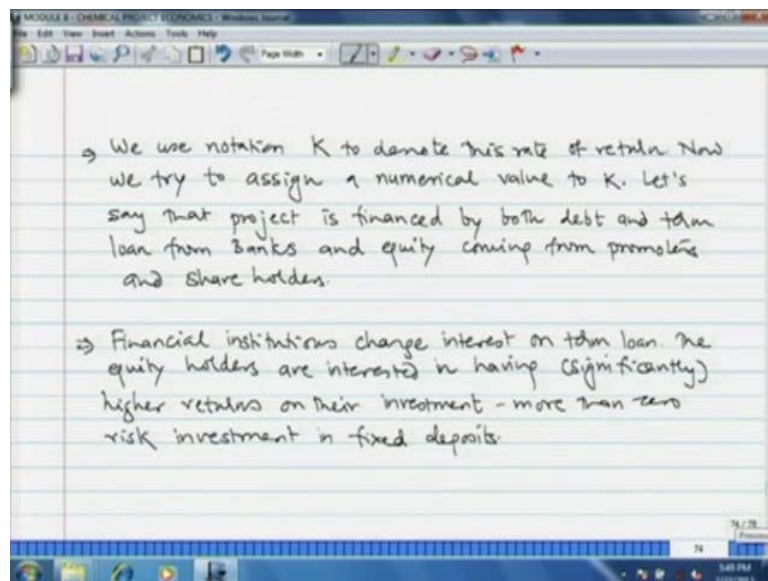 MODULE 8 - CHEMICAL PROJECT ECONOMICS - Windows Journal
File Edit View Insert Actions Tools Help
Page Width
⇒ We use notation K to denote this rate of return Now
we try to assign a numerical value to K. Let's
say that project is financed by both debt and term
loan from Banks and equity coming from promoters
and share holders.
⇒ Financial institutions change interest on term loan. The
equity holders are interested in having (significantly)
higher returns on their investment - more than zero
risk investment in fixed deposits.
74 / 78
Previous
74
3:49 PM